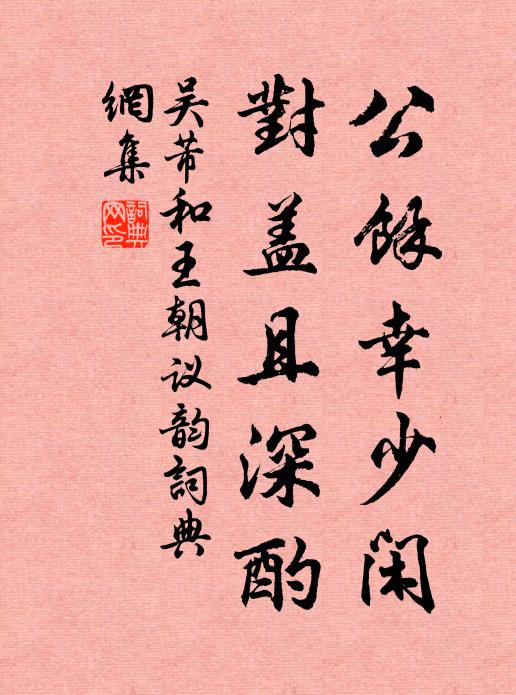 公餘幸少闲
對盖且深酌
吴芾和王朝议韵詞典
網集
詞典網印